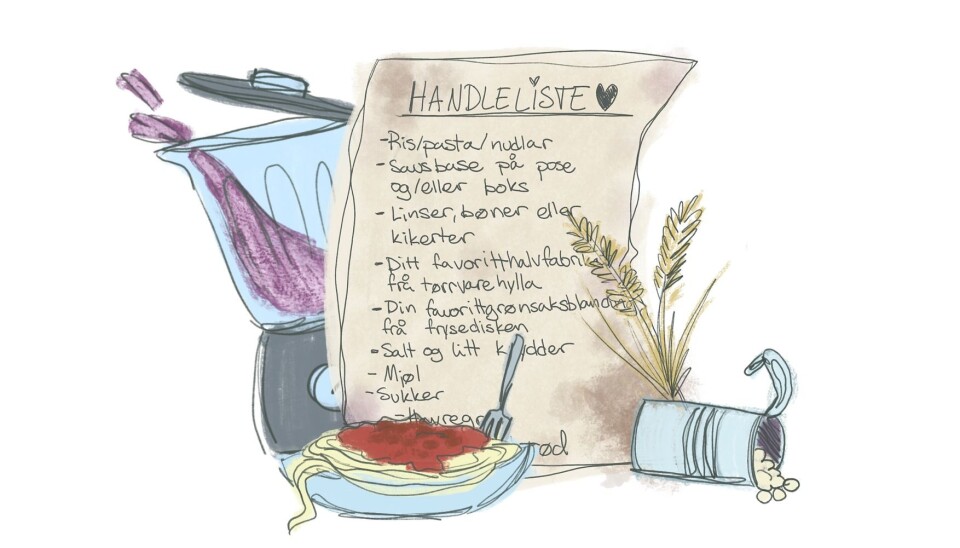 HANDLELISTE
- Ris/pasta/nudlar
- Sausbase på pose
og/eller boks
- Linser, bønner eller
kikerter
- Ditt favoritthalvfabrika
frå tørrvarehylla
- Din favorittgrønsaksblanding
frå frysedisken
- Salt og litt krydder
- Mjøl
- Sukker